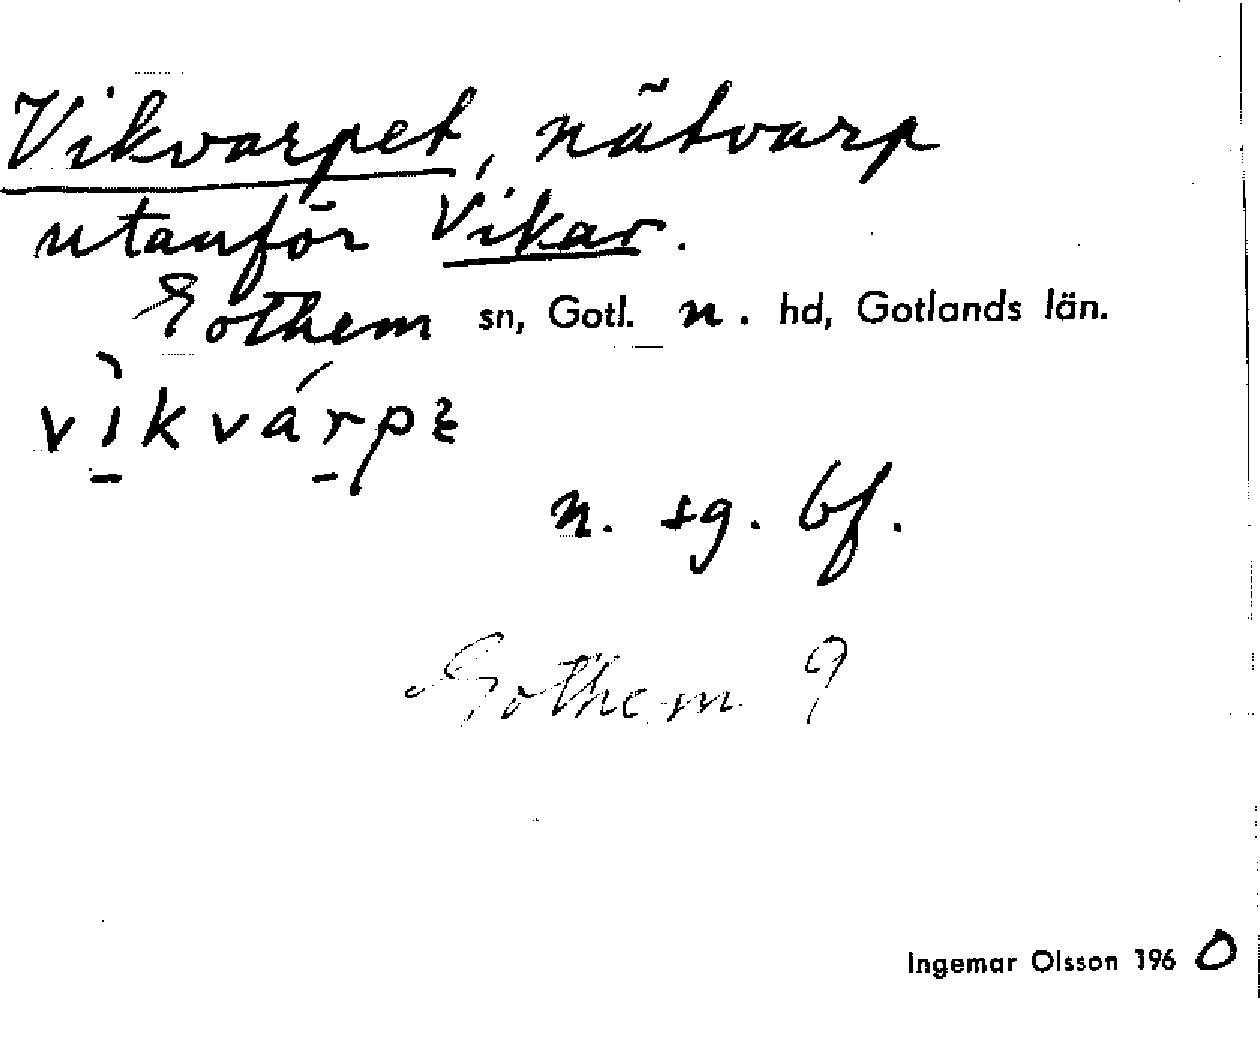 Vikvarpet, nätvarp
utanför Vikar.
Gothem sn, Gotl. n. hd, Gotlands län.
n. sg. bf.
Gothem 9
Ingemar Olsson 1960